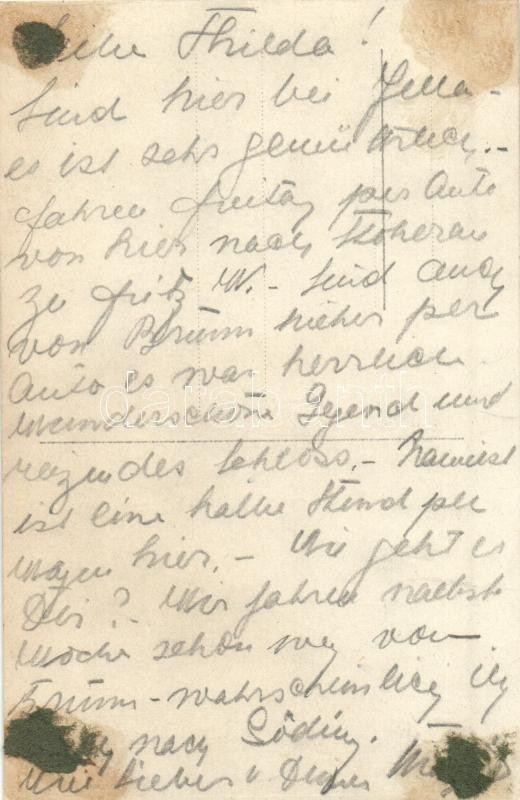 Liebe Thilda!
Sind hier bei
es ist sehr gemütlich.-
fahren freitag per Auto
von hier nach
zu Fritz W. - Sind auch
von Brünn hieher per
Auto es war herrlich
Wunderschöne Gegend und
reizendes Schloss. -
ist eine halbe Stund per
Wagen hier. - Wie geht es
Dir? Wir fahren nächste
Woche schon weg von
Brünn - wahrscheinlich
nach